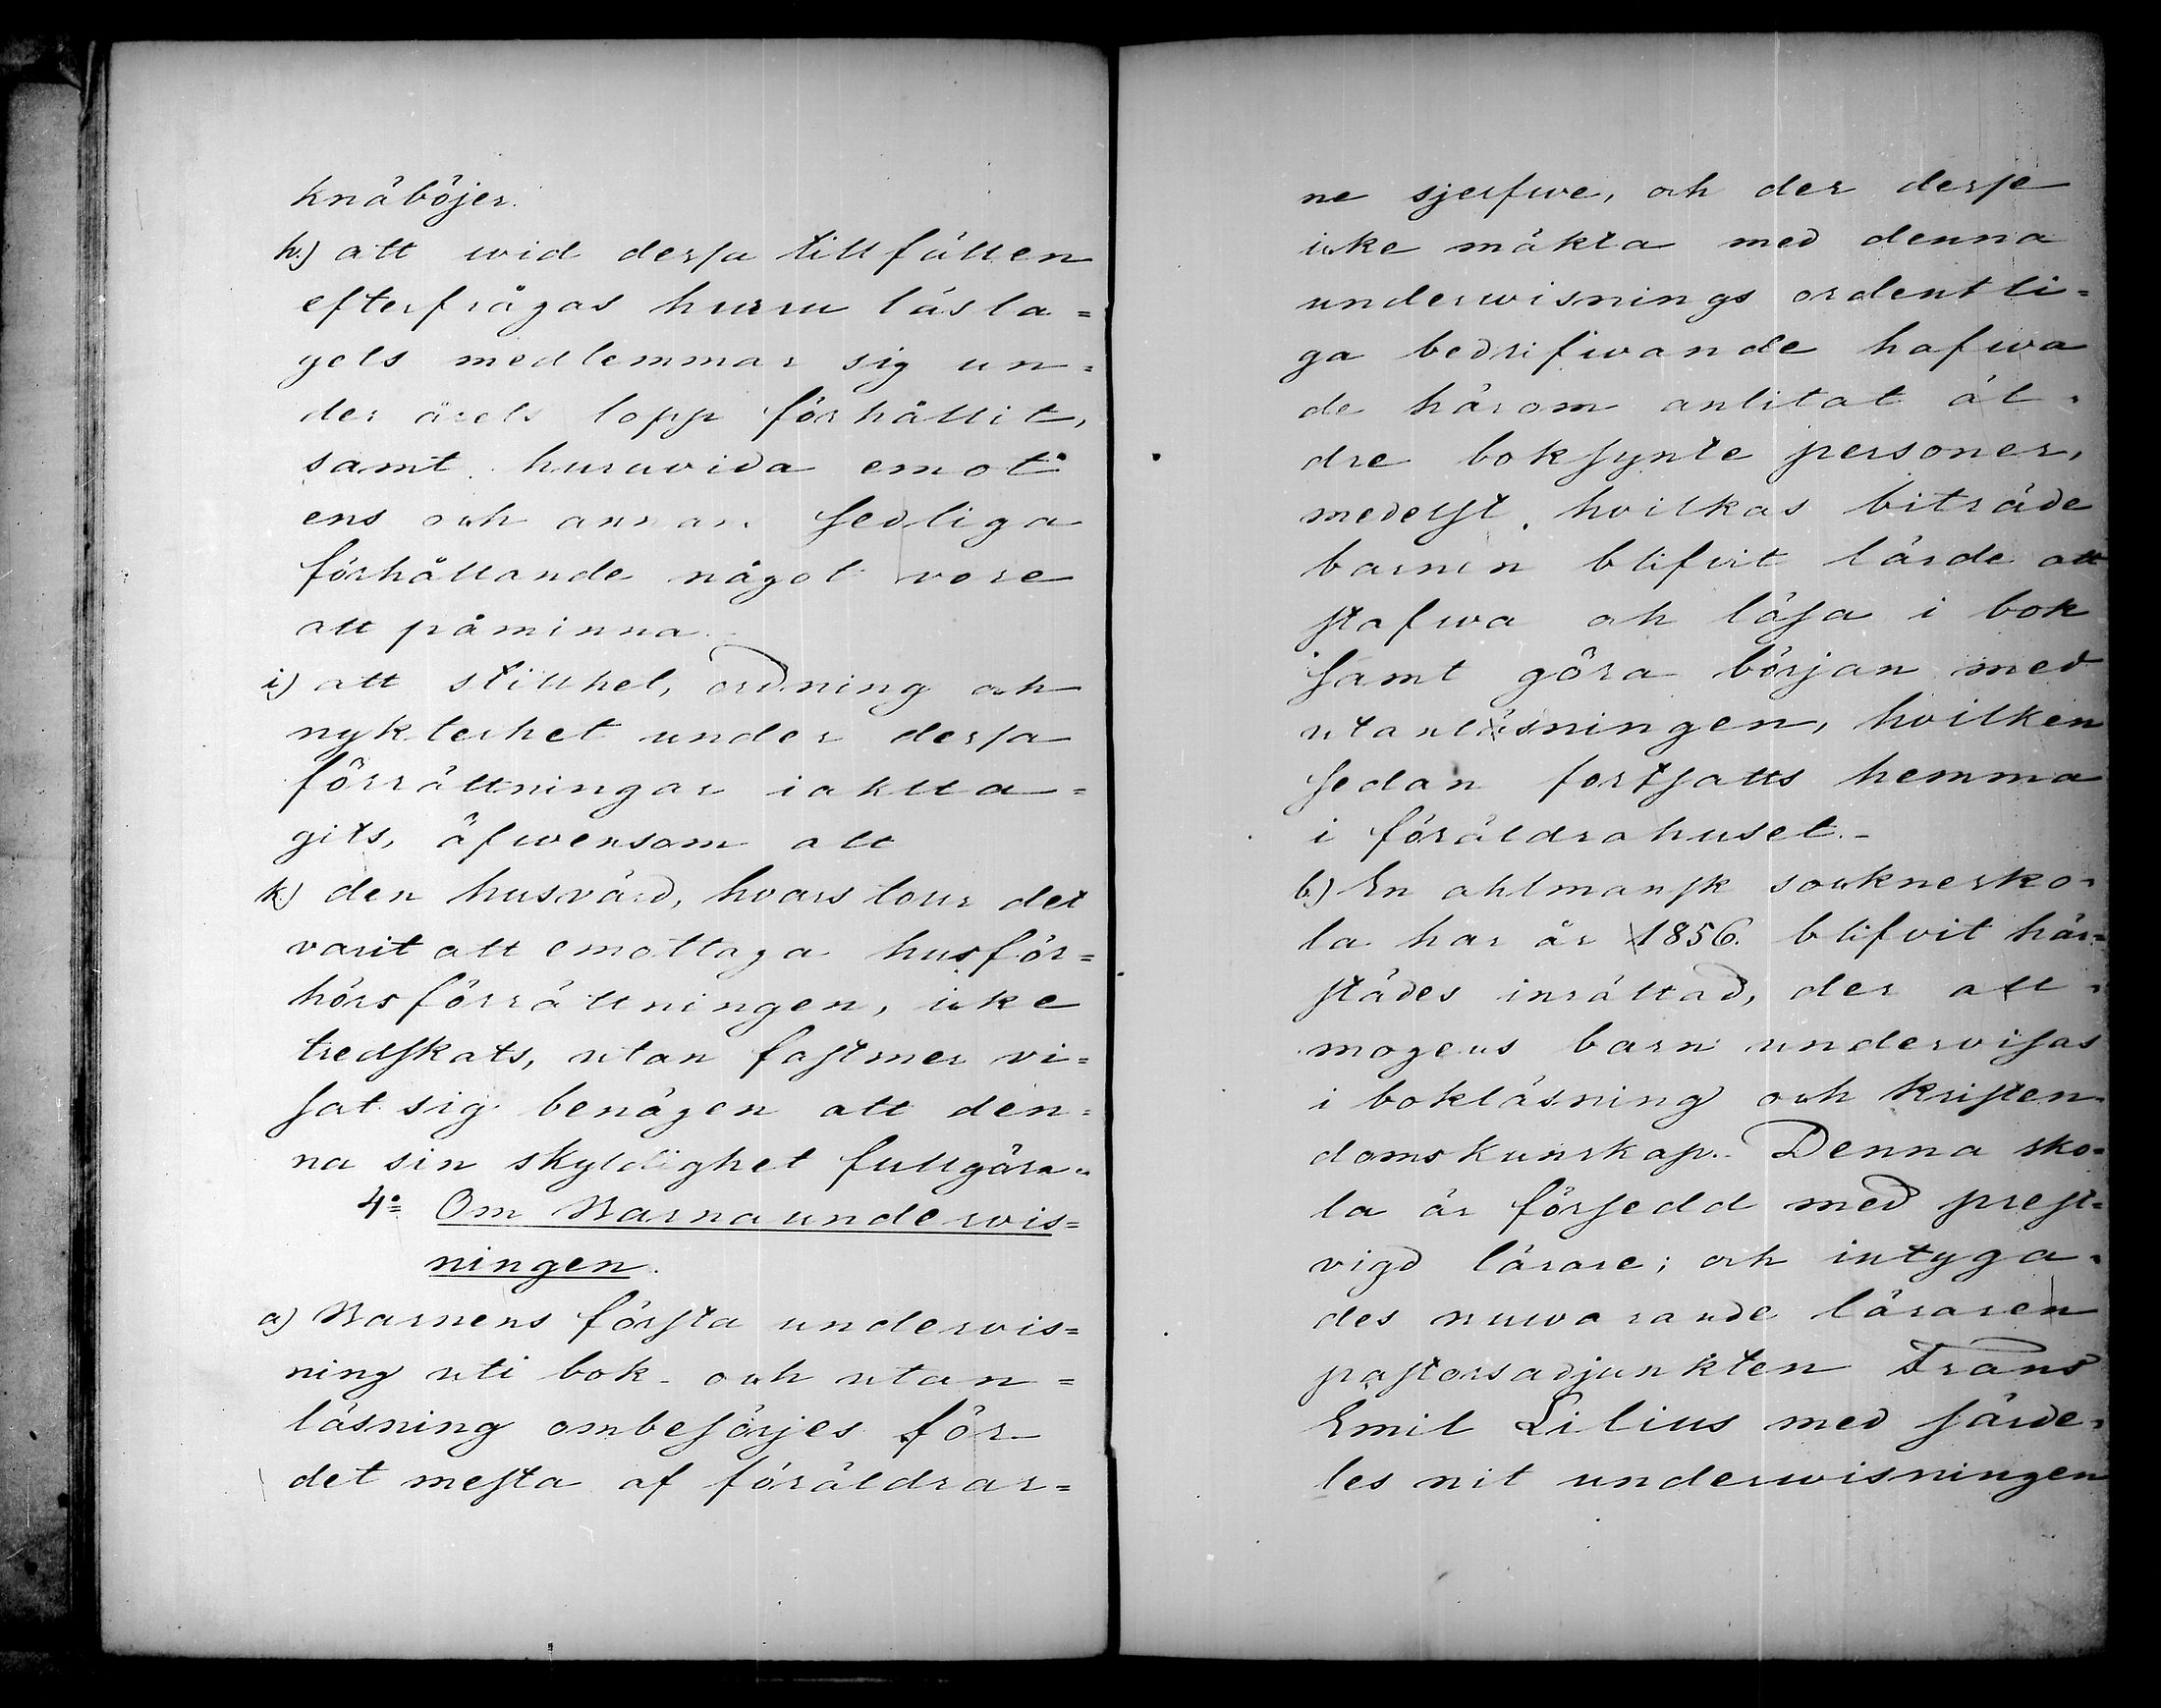 knäböjer.
h.) att wid dessa tillfällen
efterfrågas huru läsla=
gets medlemmar sig un=
der årets lopp förhållit,
samt huruvida emot
ens och annans sedliga
förhållande något vore
att påminna.
i) att stillhet, ordning och
nykterhet under dessa
förrättningar iaktta=
gits, äfwensom att
k) den husvärd, hvars tour det
varit att emottaga husför=
hörsförrättningen, icke
tredskats, utan fastmer vi=
sat sig benägen att den=
na sin skyldighet fullgöra.
4º Om Barnaunderwis=
ningen.
a) Barnens första undervis=
ning uti bok- och utan=
läsning ombesörjes för
det mesta af föräldrar=
ne sjelfwe, och der desse
icke mäkta med denna
underwisnings ordentli=
ga bedrifwande hafwa
de härom anlitat äl=
dre boksynte personer,
medelst hvilkas biträde
barnen blifvit lärde att
stafwa och läsa i bok
samt göra början med
utanläsningen, hvilken
sedan fortsatts hemma
i föräldrahuset.-
b.) En ahlmansk socknesko=
la har år 1856. blifvit här=
städes inrättad, der all=
mogens barn undervisas
i bokläsning och kristen=
domskunskap. Denna sko=
la är försedd med prest=
vigd lärare; och intyga=
des nuwarande läraren
pastorsadjunkten Frans
Emil Lilius med särde=
les nit underwisningen